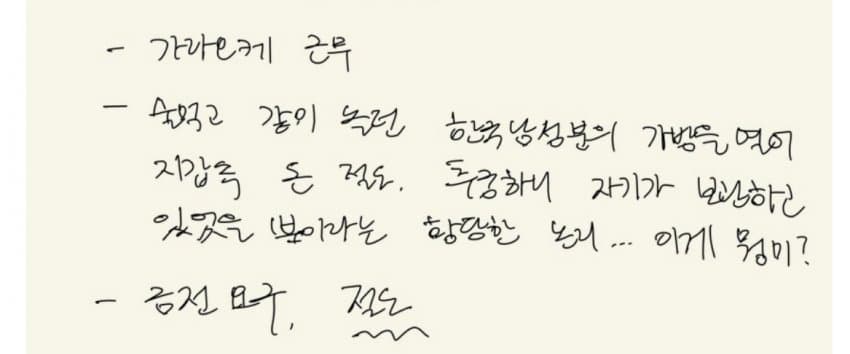 - 가라오케 근무
- 술먹고 같이 놀던 한국남성분의 가방을 열어
지갑속 돈 절도. 추궁하니 자기가 보관하고
있었을 뿐이라는 황당한 논리... 이게 뭥미?
- 금전 요구, 절도